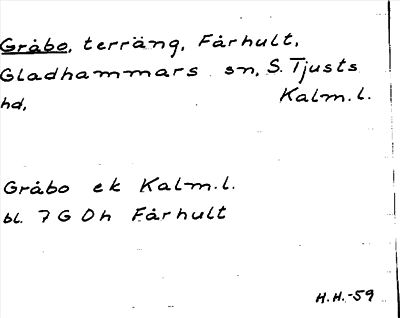 Gråbo, terräng, Fårhult,
Gladhammars sn, S. Tjusts
hd, Kalm. l.
Gråbo ek Kalm. l.
bl. 7 G 0h Fårhult
H.H.-59